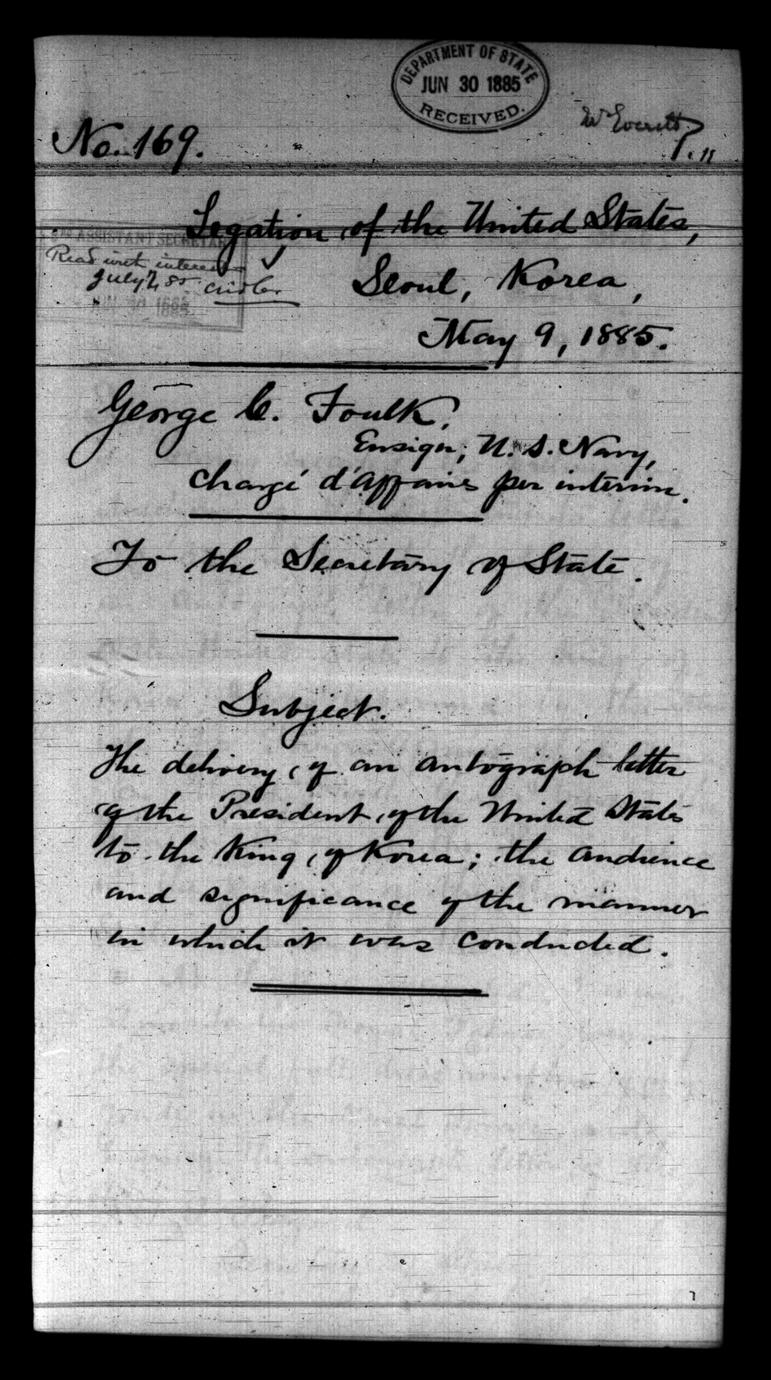 DEPARTMENT OF STATE
JUN 30 1885
RECEIVED.
No. 169.
Legation of the United States,
ASSISTANT SECRETARY
Read with interest
July 2, 85
JUN 30 1885
Seoul, Korea,
May 9, 1885.
George C. Foulk,
Ensign, U.S. Navy,
Chargé d'Affaires per interim.
To the Secretary of State.
Subject.
The delivery of an autograph letter
of the President of the United States
to the King of Korea; the audience
and significance of the manner
in which it was conducted.